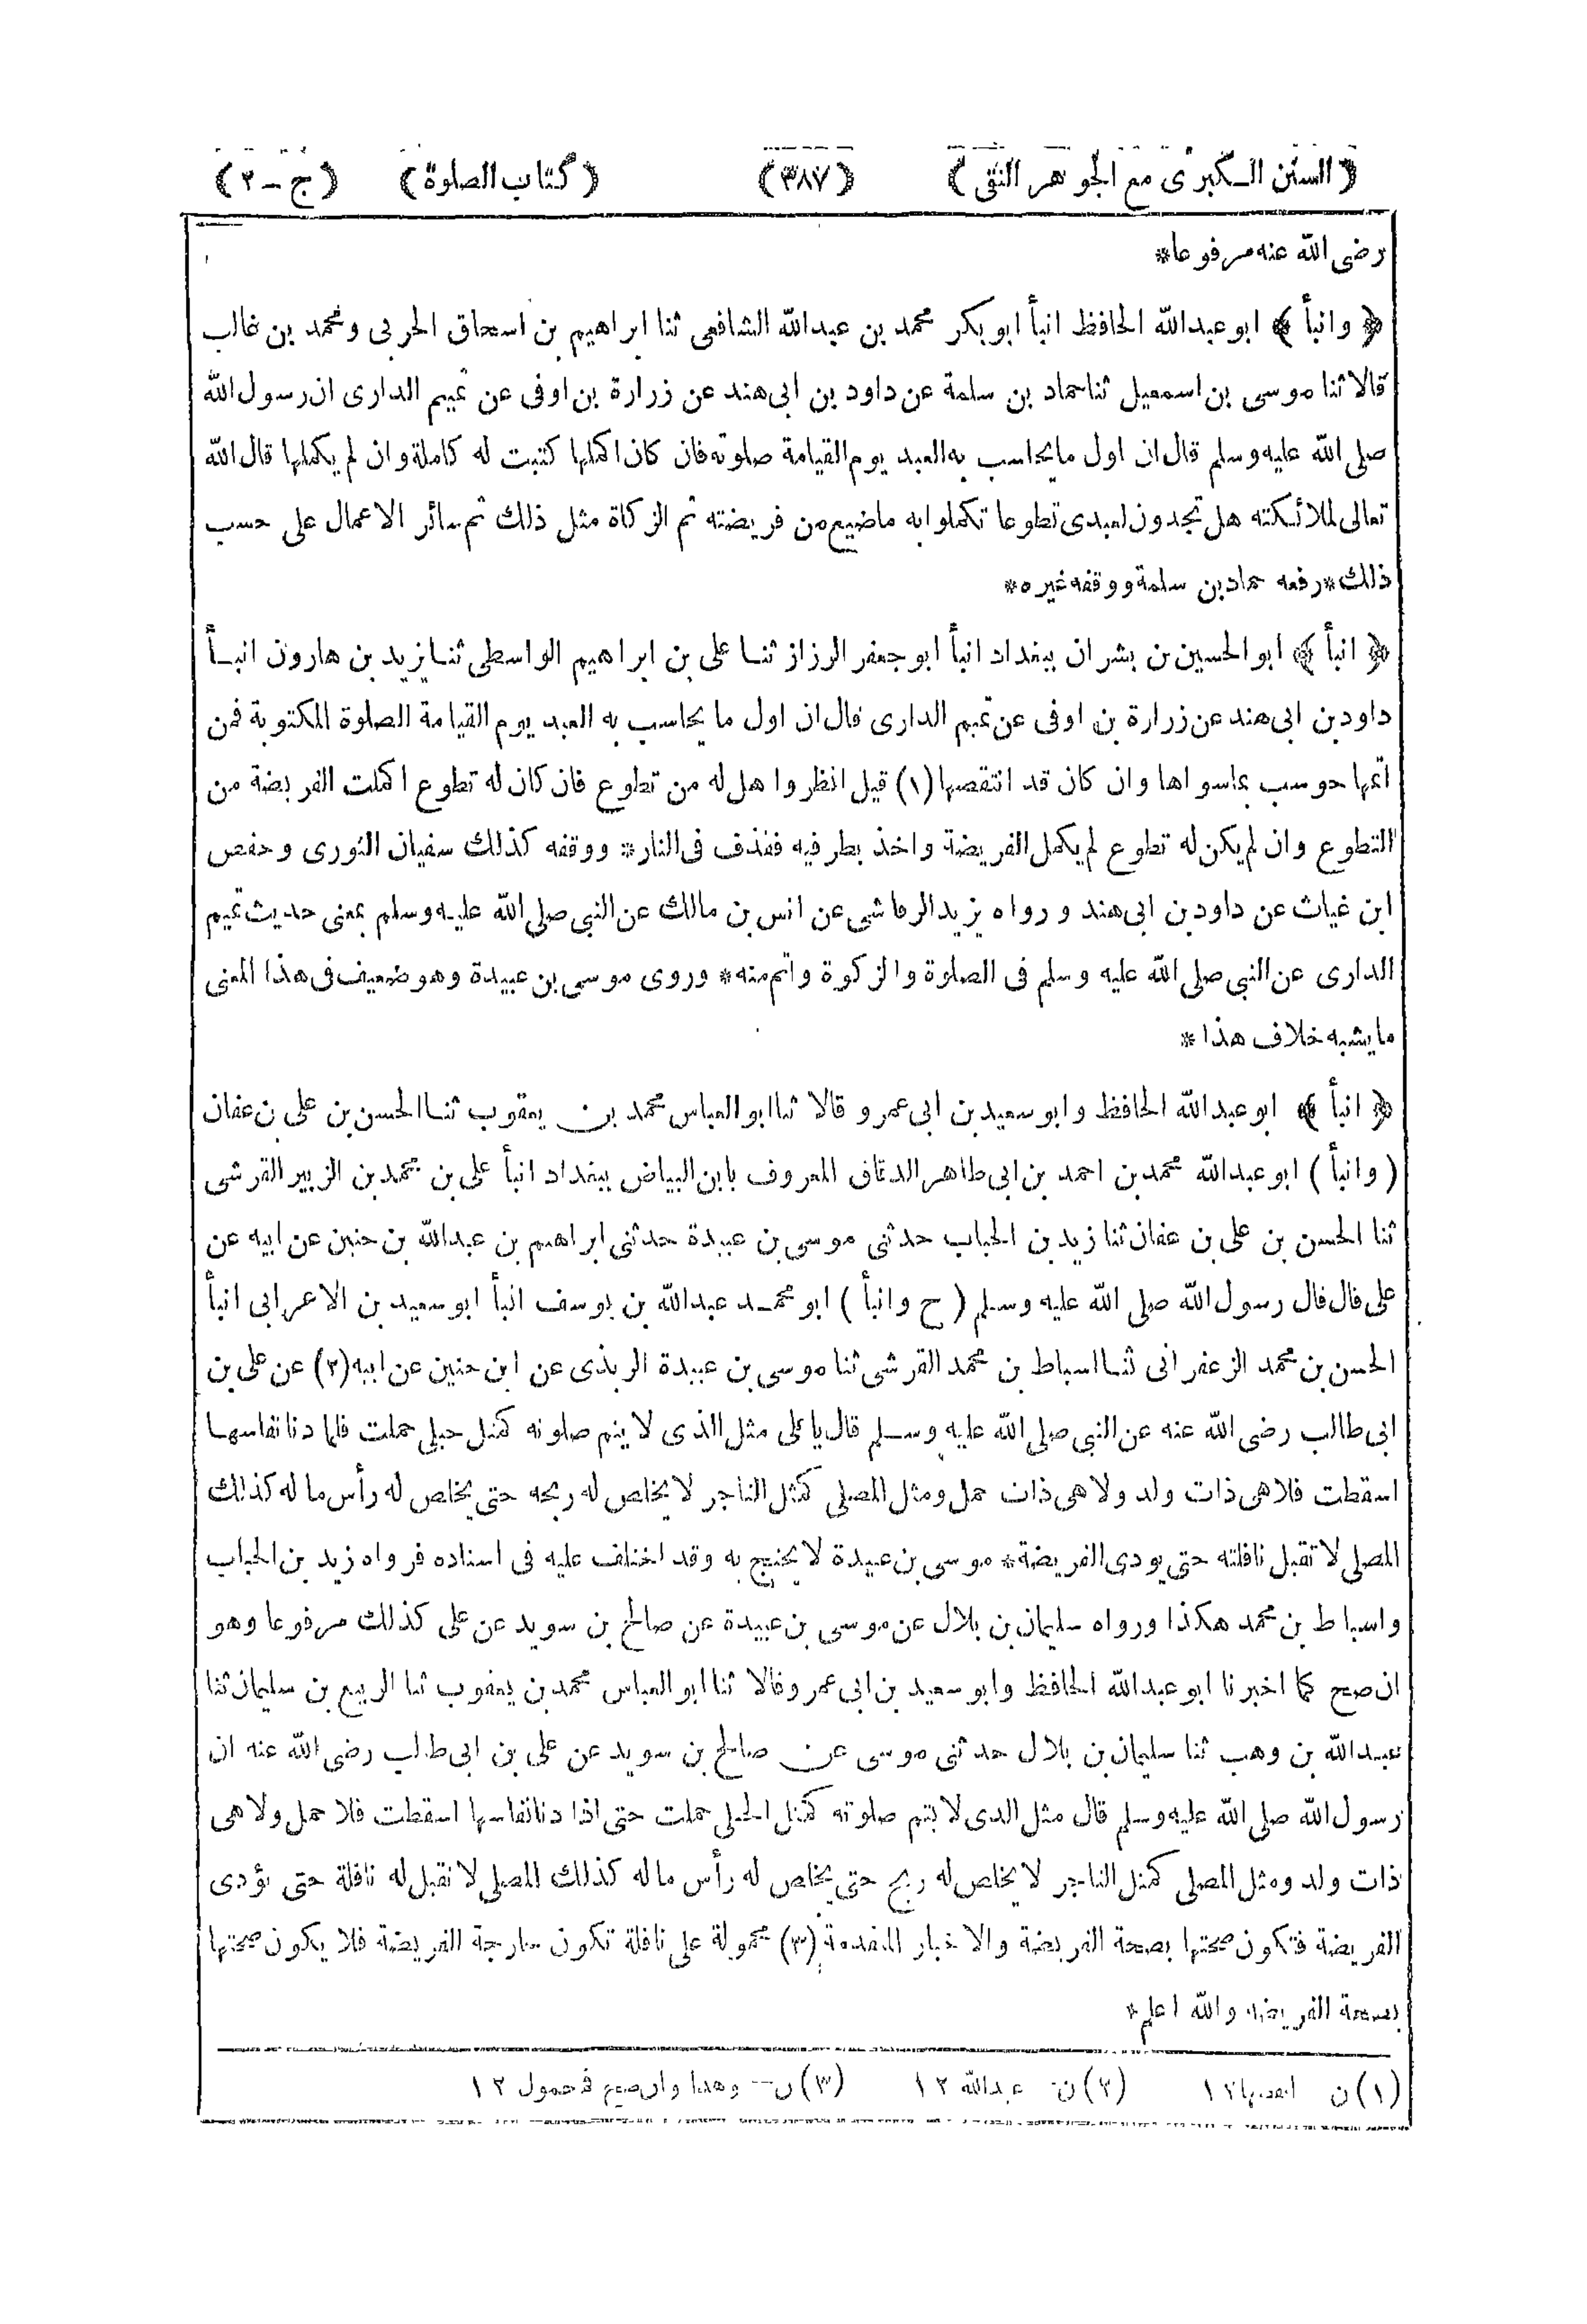 ﴿السنن الكبرى مع الجوهر النقى﴾ ﴿٣٨٧﴾ ﴿كتاب الصلوة﴾ ﴿ج-٢﴾
رضى الله عنه مرفوعا*
﴿وانبأ﴾ ابو عبدالله الحافظ انبأ ابو بكر محمد بن عبدالله الشافعى ثنا ابراهيم بن اسحاق الحربى ومحمد بن غالب
قالا ثنا موسى بن اسمعيل ثنا حماد بن سلمة عن داود بن ابى هند عن زرارة بن اوفى عن تميم الدارى ان رسول الله
صلى الله عليه وسلم قال ان اول ما يحاسب به العبد يوم القيامة صلوته فان كان اكملها كتبت له كاملة وان لم يكملها قال الله
تعالى لملائكته هل تجدون لعبدى تطوعا تكملوا به ما ضيع من فريضته ثم الزكاة مثل ذلك ثم سائر الاعمال على حسب
ذلك*رفعه حماد بن سلمة ووقفه غيره*
﴿انبأ﴾ ابو الحسين بن بشران ببغداد انبأ ابو جعفر الرزاز ثنا على بن ابراهيم الواسطى ثنا يزيد بن هارون انبأ
داود بن ابى هند عن زرارة بن اوفى عن تميم الدارى قال ان اول ما يحاسب به العبد يوم القيامة الصلوة المكتوبة فمن
اتمها حوسب بما سواها وان كان قد انتقصها (١) قيل انظروا هل له من تطوع فان كان له تطوع اكملت الفريضة من
التطوع وان لم يكن له تطوع لم يكمل الفريضة واخذ بطرفيه فقذف فى النار* ووقفه كذلك سفيان الثورى وحفص
ابن غياث عن داود بن ابى هند ورواه يزيد الرقاشى عن انس بن مالك عن النبى صلى الله عليه وسلم بمعنى حديث تميم
الدارى عن النبى صلى الله عليه وسلم فى الصلوة والزكوة واتم منه* وروى موسى بن عبيدة وهو ضعيف فى هذا المعنى
ما يشبه خلاف هذا*
﴿انبأ﴾ ابو عبدالله الحافظ وابو سعيد بن ابى عمرو قالا ثنا ابو العباس محمد بن يعقوب ثنا الحسن بن على بن عفان
(وانبأ) ابو عبدالله محمد بن احمد بن ابى طاهر الدقاق المعروف بابن البياض ببغداد انبأ على بن محمد بن الزبير القرشى
ثنا الحسن بن على بن عفان ثنا زيد بن الحباب حدثنى موسى بن عبيدة حدثنى ابراهيم بن عبدالله بن حنين عن ابيه عن
على قال قال رسول الله صلى الله عليه وسلم (ح وانبأ) ابو محمد عبدالله بن يوسف انبأ ابو سعيد بن الاعرابى انبأ
الحسن بن محمد الزعفرانى ثنا اسباط بن محمد القرشى ثنا موسى بن عبيدة الربذى عن ابن حنين عن ابيه (٢) عن على بن
ابى طالب رضى الله عنه عن النبى صلى الله عليه وسلم قال يا على مثل الذى لا يتم صلوته كمثل حبلى حملت فلما دنا نفاسها
اسقطت فلا هى ذات ولد ولا هى ذات حمل ومثل المصلى كمثل التاجر لا يخلص له ربحه حتى يخلص له رأس ماله كذلك
المصلى لا تقبل نافلته حتى يودى الفريضة* موسى بن عبيدة لا يحتج به وقد اختلف عليه فى اسناده فرواه زيد بن الحباب
واسباط بن محمد هكذا ورواه سليمان بن بلال عن موسى بن عبيدة عن صالح بن سويد عن على كذلك مرفوعا وهو
ان صح كما اخبرنا ابو عبدالله الحافظ وابو سعيد بن ابى عمرو قالا ثنا ابو العباس محمد بن يعقوب ثنا الربيع بن سليمان ثنا
عبدالله بن وهب ثنا سليمان بن بلال حدثنى موسى عن صالح بن سويد عن على بن ابى طالب رضى الله عنه ان
رسول الله صلى الله عليه وسلم قال مثل الذى لا يتم صلوته كمثل الحبلى حملت حتى اذا دنا نفاسها اسقطت فلا حمل ولا هى
ذات ولد ومثل المصلى كمثل التاجر لا يخلص له ربح حتى يخلص له رأس ماله كذلك المصلى لا تقبل له نافلة حتى يؤدى
الفريضة فتكون صحتها بصحة الفريضة والاخبار المتقدمة (٣) محمولة على نافلة تكون خارجة الفريضة فلا يكون صحتها
بصحة الفريضة والله اعلم*
(١) ن ١٢ (٢) ن- عبدالله ١٢ (٣) ن- وهذا وان صح فمحمول ١٢